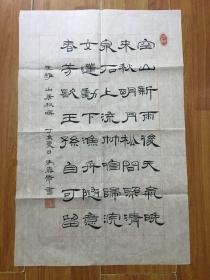 空山新雨後天氣晚
来秋明月松間照清
泉石上流竹喧歸浣
女蓮動下漁舟随意
春芳歇王孫自可留
王維 山居秋暝 丁亥夏日 書